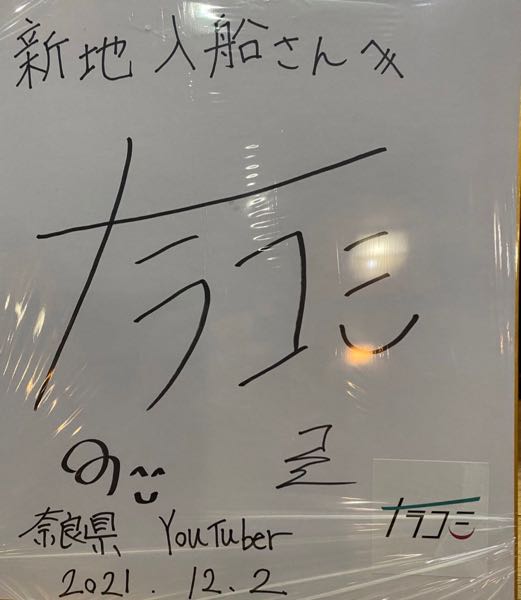 新地入船さんへ
ナラコミ
奈良県 YouTuber
2021.12.2
ナラコミ